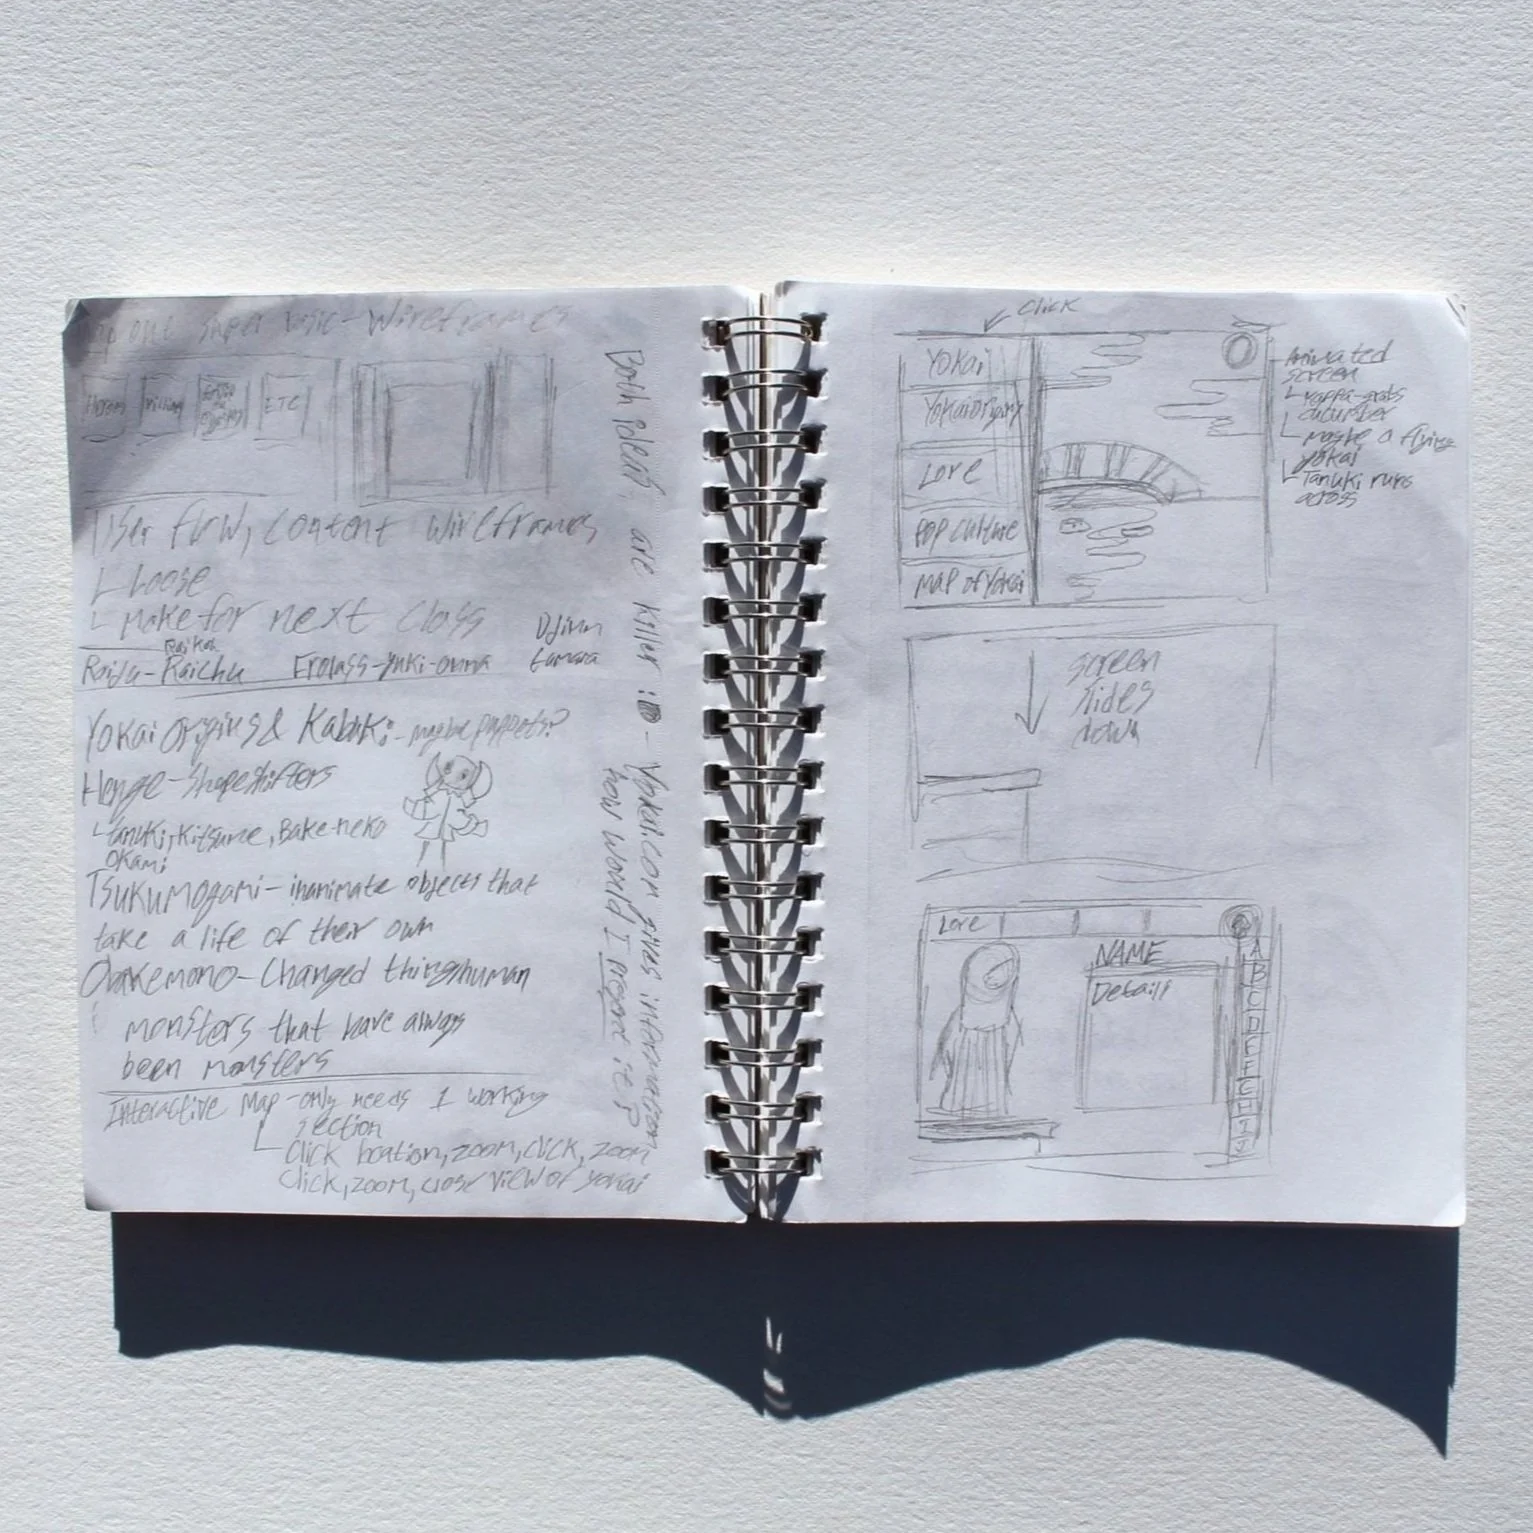 out super basic - wireframes
Heroes
Villains
ETC
User flow, content wireframes
Loose
make for next class
Raikou
Raiju - Raichu Froslass - yuki-onna
Djinn
Yokai origins & Kabuki - maybe puppets?
Henge - Shapeshifters
Tanuki, Kitsune, Bake-neko
Okami
Tsukumogami - inanimate objects that
take a life of their own
Obakemono - Changed things human
monsters that have always
been monsters
Interactive Map - only needs 1 working
section
Click location, zoom, click, zoom
Click, zoom, close view of yokai
Both ideas are killer :D - Yokai.com gives information
how would I present it?
Click
Yokai
Yokai origins
Lore
Pop Culture
Map of Yokai
Animated
screen
Kappa grabs
cucumber
maybe a flying
yokai
Tanuki runs
across
screen
slides
down
Lore
NAME
Details
A
B
C
D
E
F
G
H
I
J